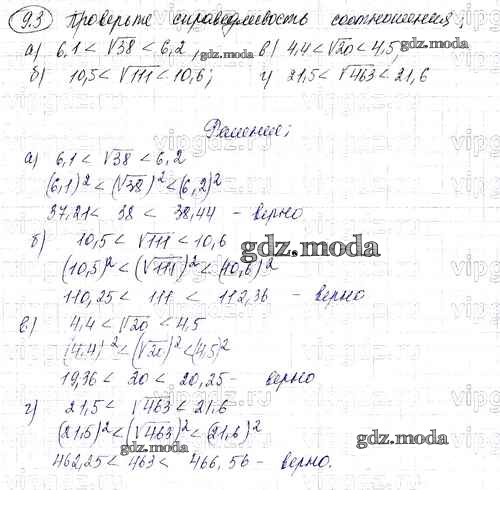 9.3 Проверьте справедливость соотношения:
а) 6,1 < √38 < 6,2, в) 4,4 < √20 < 4,5,
б) 10,5 < √111 < 10,6; г) 21,5 < √463 < 21,6
Решение;
а) 6,1 < √38 < 6,2
(6,1)² < (√38)² < (6,2)²
37,21 < 38 < 38,44 - верно
б) 10,5 < √111 < 10,6
gdz.moda
(10,5)² < (√111)² < (10,6)²
110,25 < 111 < 112,36 - верно
в) 4,4 < √20 < 4,5
(4,4)² < (√20)² < (4,5)²
19,36 < 20 < 20,25 - верно
г) 21,5 < √463 < 21,6
(21,5)² < (√463)² < (21,6)²
gdz.moda
462,25 < 463 < 466,56 - верно.